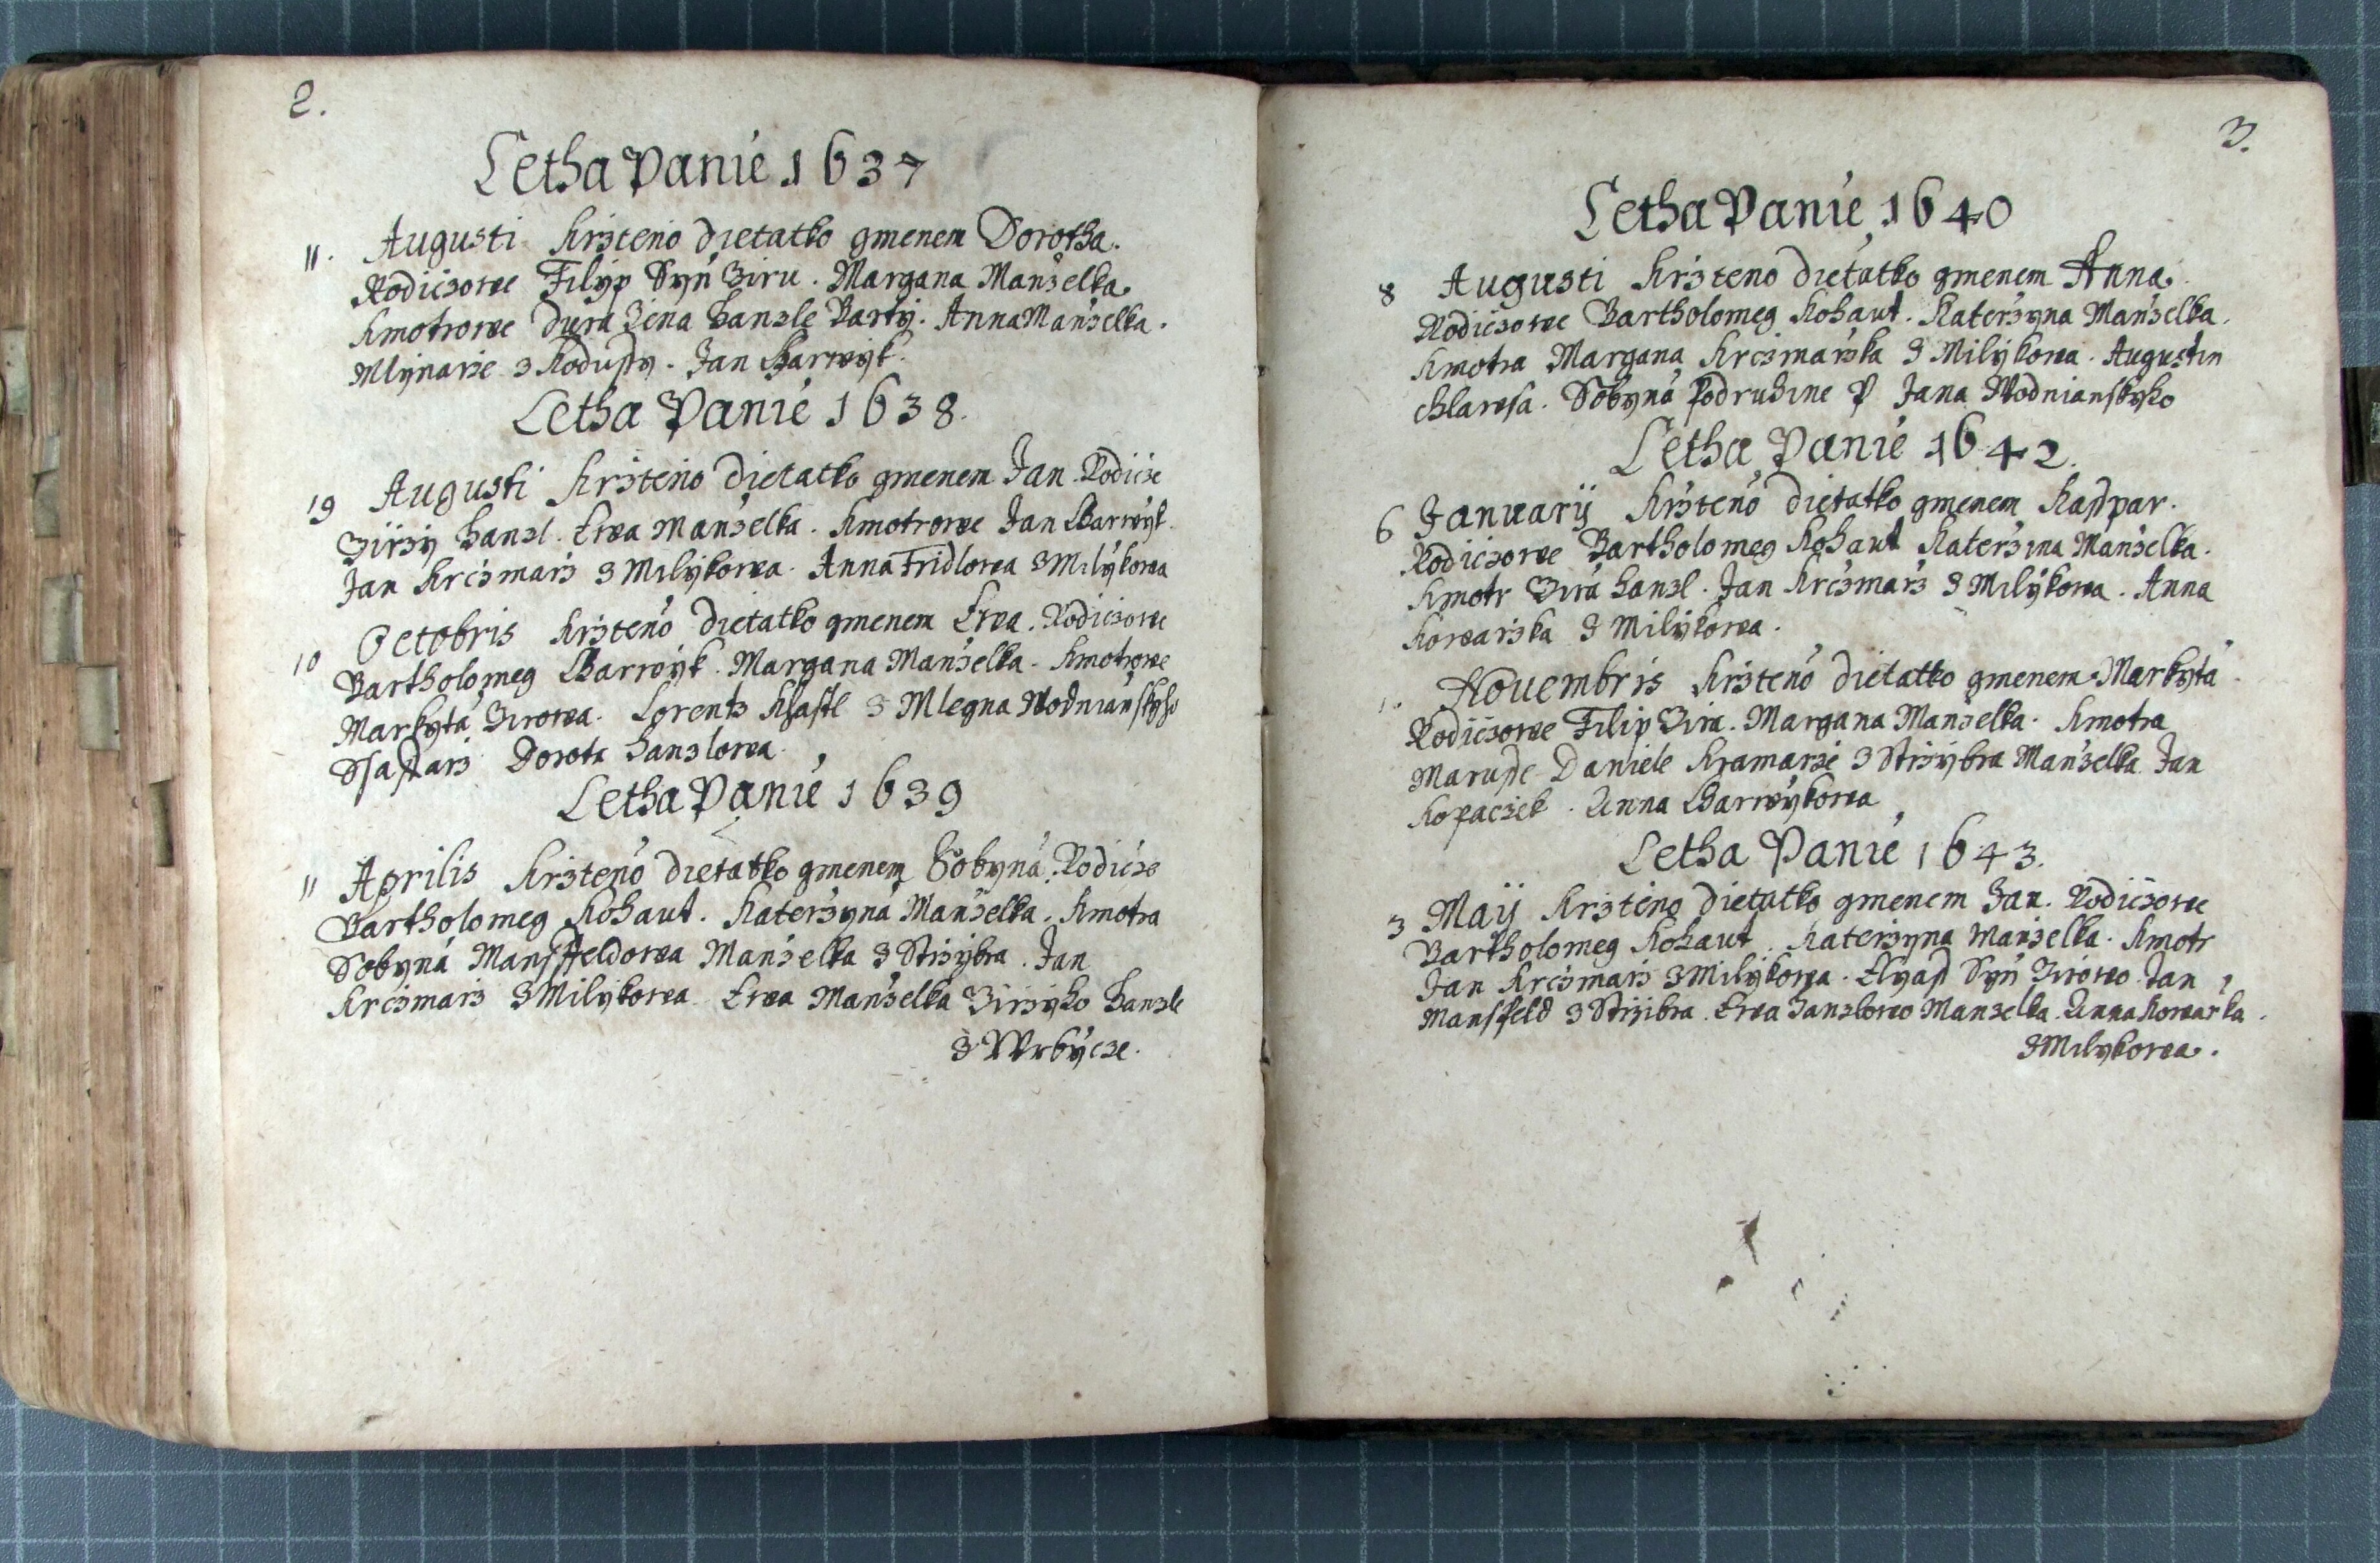 2.
Letha Panie 1637
11. Augusti Krzteno dietatko gmenem Dorotha.
Rodiczowe Filip Syn Ziru. Margana Manzelka.
Kmotrowe Dura Zena hanzle Barty. Anna Manzelka.
Mlynarze z Kodussy. Jan Barwyk.
Letha Panie 1638.
19 Augusti Krzteno dietatko gmenem Jan. Rodicze
Zirzy hanzl. Ewa Manzelka. Kmotrowe Jan Barwyk.
Jan Krczmarz z Milykowa. Anna Fridlowa z Milykowa
10 Octobris Krzteno dietatko gmenem Ewa. Rodiczowe
Bartholomeg Barwyk. Margana Manzelka. Kmotrowe
Markyta Zirowa. Lorentz z Mlegna Wodnianskyho
Ssaffarz Dorota hanzlowa.
Letha Panie 1639
11 Aprilis Krzteno dietatko gmenem Sobyna. Rodicze
Bartholomeg Kohaut. Katerzyna Manzelka. Kmotra
Sobyna Mansffeldowa Manzelka z Strzybra. Jan
Krczmarz z Milykowa Ewa Manzelka Zirzyho hanzle
z Wrbycze.
3.
Letha Panie 1640
8 Augusti Krzteno dietatko gmenem Anna.
Rodiczowe Bartholomeg Kohaut. Katerzyna Manzelka.
Kmotra Margana Krczmarzka z Milykowa. Augustin
Chlawsa. Sobyna Podruhine P Jana Wodnianskyho
Letha Panie 1642.
6 Januarij Krzteno dietatko gmenem Kasspar.
Rodiczowe Bartholomeg Kohaut Katerzina Manzelka.
Kmotr Zira hanzl. Jan Krczmarz z Milykowa. Anna
Kowarzka z Milykowa.
Nouembris Krzteno dietatko gmenem Markyta.
Rodiczowe Filip Zira. Margana Manzelka. Kmotra
Marusse Daniele Kramarze z Strzybra Manzelka Jan
Kopaczek. Anna Barwykowa
Letha Panie 1643.
3 Maij Krzteno dietatko gmenem Jan. Rodiczowe
Bartholomeg Kohaut. Katerzyna Manzelka. Kmotr
Jan Krczmarz z Milykowa. Elyass Syn Zirowo. Jan
Mansfeld z Strzibra. Ewa hanzlowo Manzelka. Anna Kowarka.
z Milykowa.